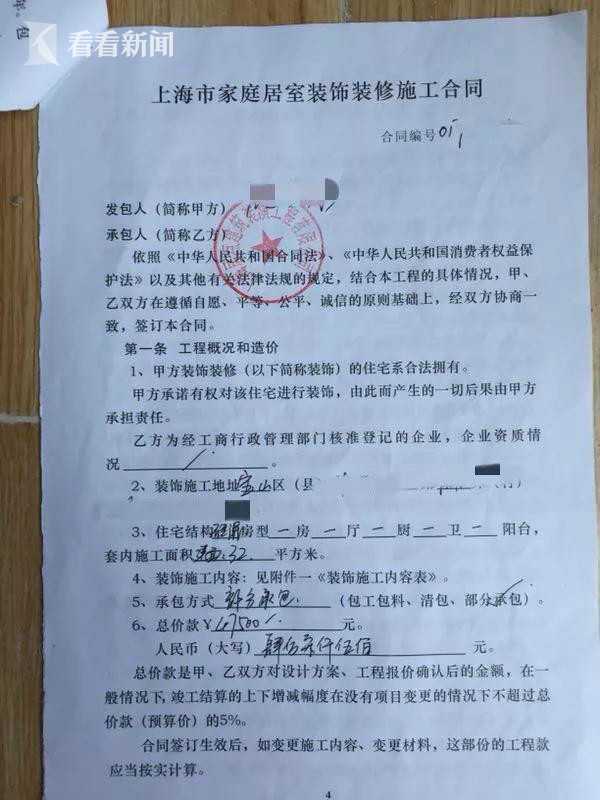 看看新闻
上海市家庭居室装饰装修施工合同
合同编号
发包人（简称甲方）
承包人（简称乙方）
依照《中华人民共和国合同法》、《中华人民共和国消费者权益保
护法》以及其他有关法律法规的规定，结合本工程的具体情况，甲、
乙双方在遵循自愿、平等、公平、诚信的原则基础上，经双方协商一
致，签订本合同。
第一条 工程概况和造价
1、甲方装饰装修（以下简称装饰）的住宅系合法拥有。
甲方承诺有权对该住宅进行装饰，由此而产生的一切后果由甲方
承担责任。
乙方为经工商行政管理部门核准登记的企业，企业资质情
况 / 。
2、装饰施工地址宝山区（县
3、住宅结构 房型 一 房 一 厅 一 厨 一 卫 一 阳台，
套内施工面积 .32 平方米。
4、装饰施工内容：见附件一《装饰施工内容表》。
5、承包方式 部分承包. （包工包料、清包、部分承包）。
6、总价款￥ 元。
人民币（大写） 仟伍佰 元。
总价款是甲、乙双方对设计方案、工程报价确认后的金额，在一
般情况下，竣工结算的上下增减幅度在没有项目变更的情况下不超过总
价款（预算价）的5%。
合同签订生效后，如变更施工内容、变更材料，这部份的工程款
应当按实计算。
4